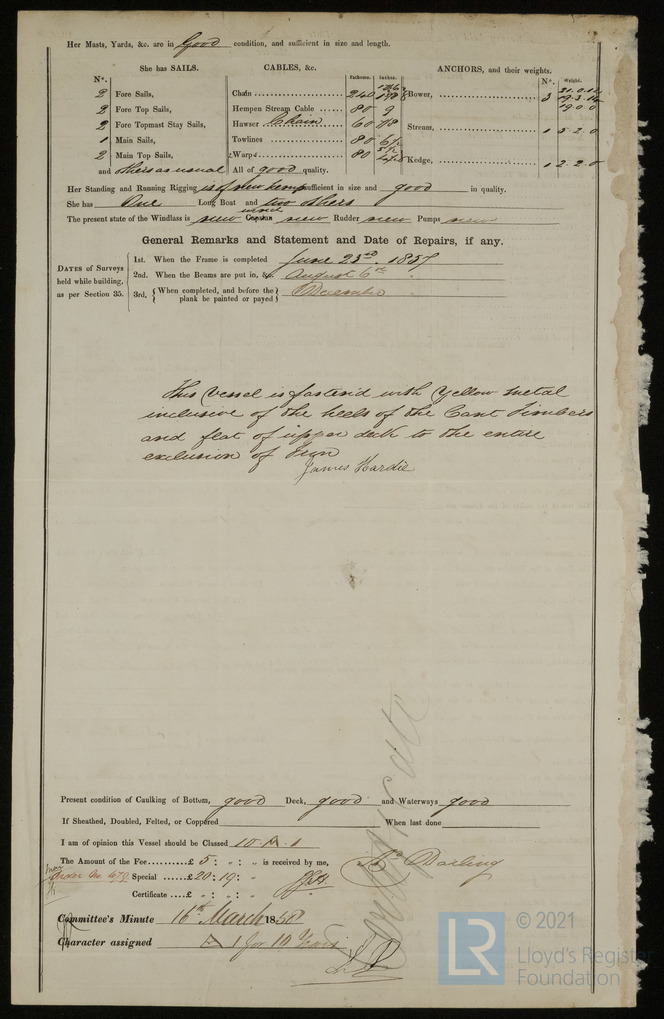 Her Masts, Yards, &c. are in Good condition, and sufficient in size and length.
She has SAILS. CABLES, &c. ANCHORS, and their weights.
N°. Fathoms. Inches. N°. Weight.
2 Fore Sails, Chain 240 Bower, 3
2 Fore Top Sails, Hempen Stream Cable 80 9 19.0.0
2 Fore Topmast Stay Sails, Hawser Chain 60 7/8 Stream, 1 5.2.0
1 Main Sails, Towlines 80
2 Main Top Sails, Warps 80 Kedge, 1 2.2.0
and others as usual All of good quality.
Her Standing and Running Rigging is of new hemp sufficient in size and good in quality.
She has One Long Boat and two others
The present state of the Windlass is new Capstan new Rudder new Pumps new
General Remarks and Statement and Date of Repairs, if any.
DATES of Surveys held while building, as per Section 35.
1st. When the Frame is completed June 23rd. 1857
2nd. When the Beams are put in, &c. August 6th
3rd. { When completed, and before the plank be painted or payed } December
This Vessel is fasten'd with Yellow Metal
inclusive of the heels of the Cant Timbers
and flat of upper deck to the entire
exclusion of Iron
James Hardie
Present condition of Caulking of Bottom, good Deck, good and Waterways good
If Sheathed, Doubled, Felted, or Coppered When last done
I am of opinion this Vessel should be Classed 10. A. 1
The Amount of the Fee..........£ 5 : " : " is received by me,
Special ......£20 : 19 : "
Certificate ....£ " : " : "
Darling
Committee's Minute 16th March 1858
Character assigned A 1 for 10 Years
© 2021
LR
Lloyd's Register
Foundation